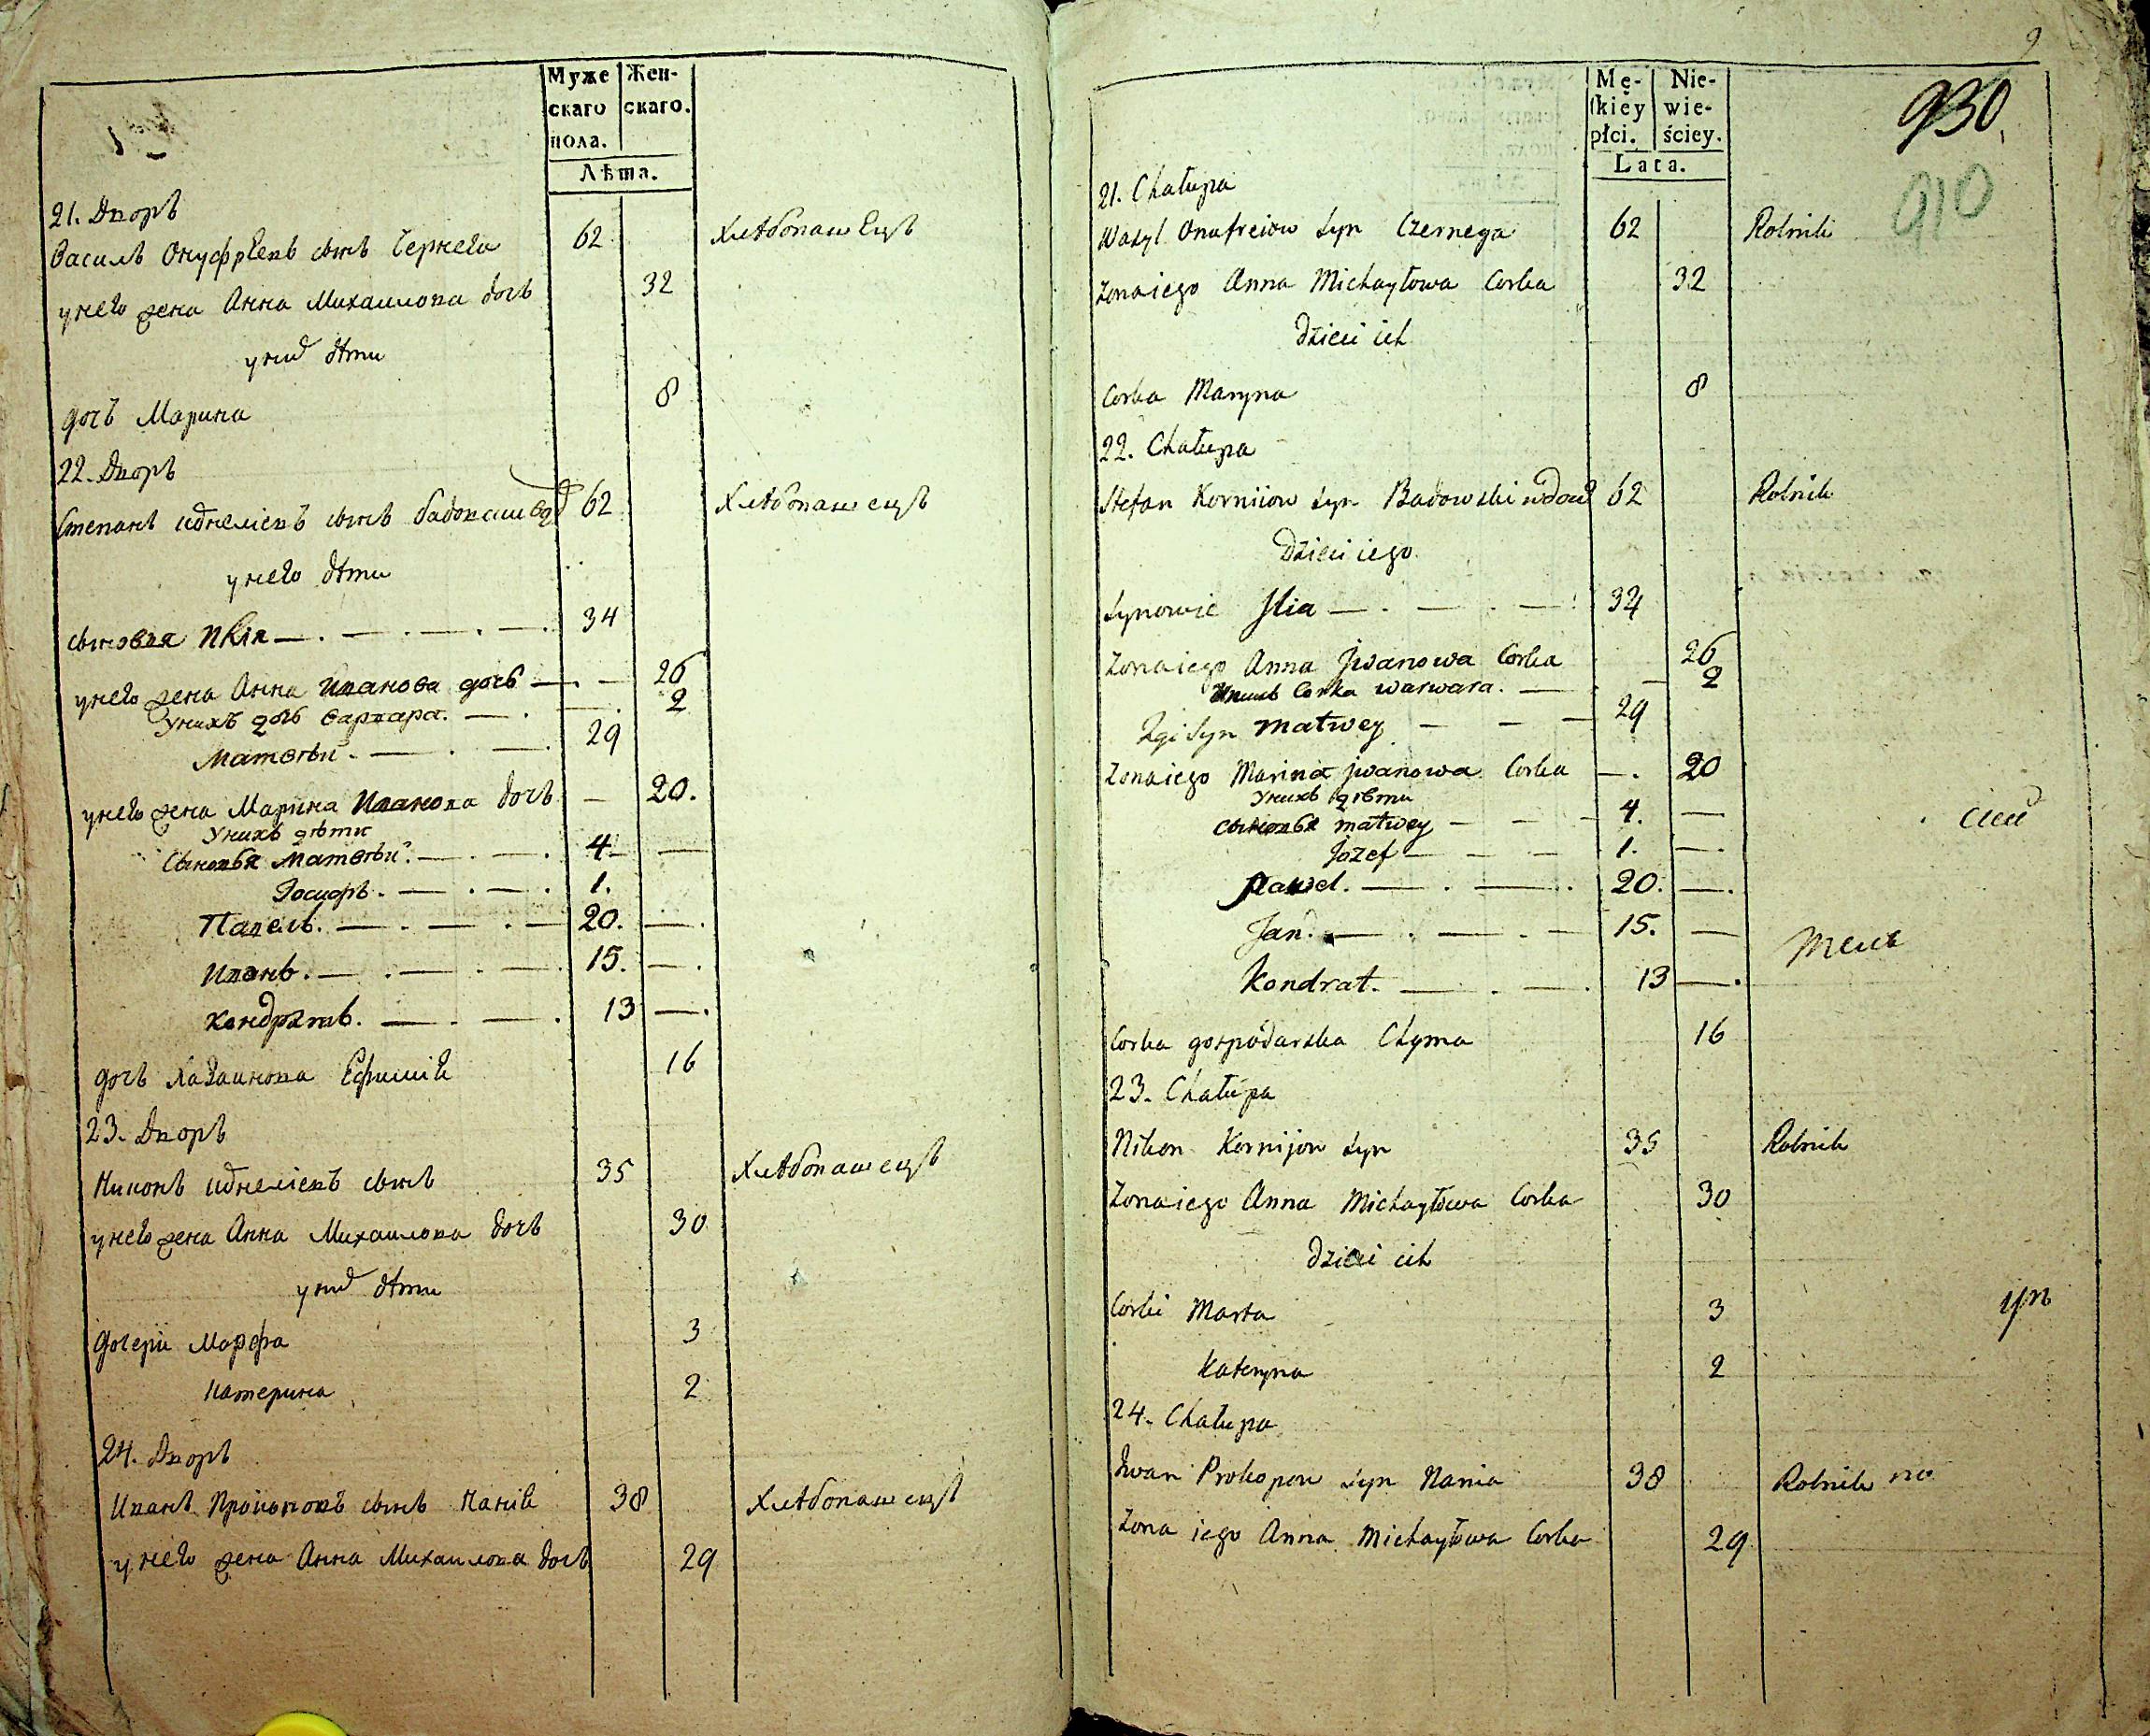 Муже
скаго
пола.
Жен-
скаго.
Лѣта.
21. Дворъ
Василь Онуфрѣевъ сынъ Чернега 62 Хлѣбопашецъ
у него жена Анна Михайлова дочь 32
у них дѣти
дочь Марина 8
22. Дворъ
Степанъ сынъ 62 Хлѣбопашецъ
у него дѣти
сыновья Илія — . — . — . — . 34
у него жена Анна Иванова дочь — . — 26
Унихъ дочь Варвара. — . — . 2
Матвѣй. — . — . 29
у него жена Марина Иванова дочь — 20.
Унихъ дѣти
Сыновья Матвѣй. — . — . 4 —
Іосифъ. — . — . 1.
Павелъ. — . — . — 20. — .
Иванъ. — . — . — . 15. — .
Кондратъ. — . — . 13 — .
дочь 16
23. Дворъ
Никонъ сынъ 35 Хлѣбопашецъ
у него жена Анна Михайлова дочь 30
у них дѣти
дочери Марфа 3
Катерина 2
24. Дворъ
Иванъ Прокоповъ сынъ Канія 38 Хлѣбопашецъ
у него жена Анна Михайлова дочь 29
9
Mę-
ſkiey
płci.
Nie-
wie-
ściey.
Lata.
930.
910
21. Chałupa
Wasyl Onufreiow syn Czernega 62 Rolnik
Zona iego Anna Michayłowa Corka 32
dzieci ich
Corka Maryna 8
22. Chałupa
Stefan Korniiow syn Badowski wdow 62 Rolnik
Dzieci iego
Synowie Ilia — . — . — . 34
Zona iego Anna Jwanowa Corka 26
Унихъ Corka warwara. — . — 2
2gi Syn matwey — — — 29
Zona iego Marina jwanowa Corka — . 20
Унихъ дѣти
Сыновья matwey — — — 4. —
Jozef — — — 1. — .
Pawel. — . — . 20. — .
Jan. — . — . — 15. —
Kondrat. — . — . 13 — .
Corka gospodarska Chyma 16
23. Chałupa
Nikon Kornijow syn 35 Rolnik
Zona iego Anna Michayłowa Corka 30
dzieci ich
Corki Marta 3
Kateryna 2
24. Chałupa
Iwan Prokopow syn Kania 38 Rolnik
Zona iego Anna Michayłowa Corka 29